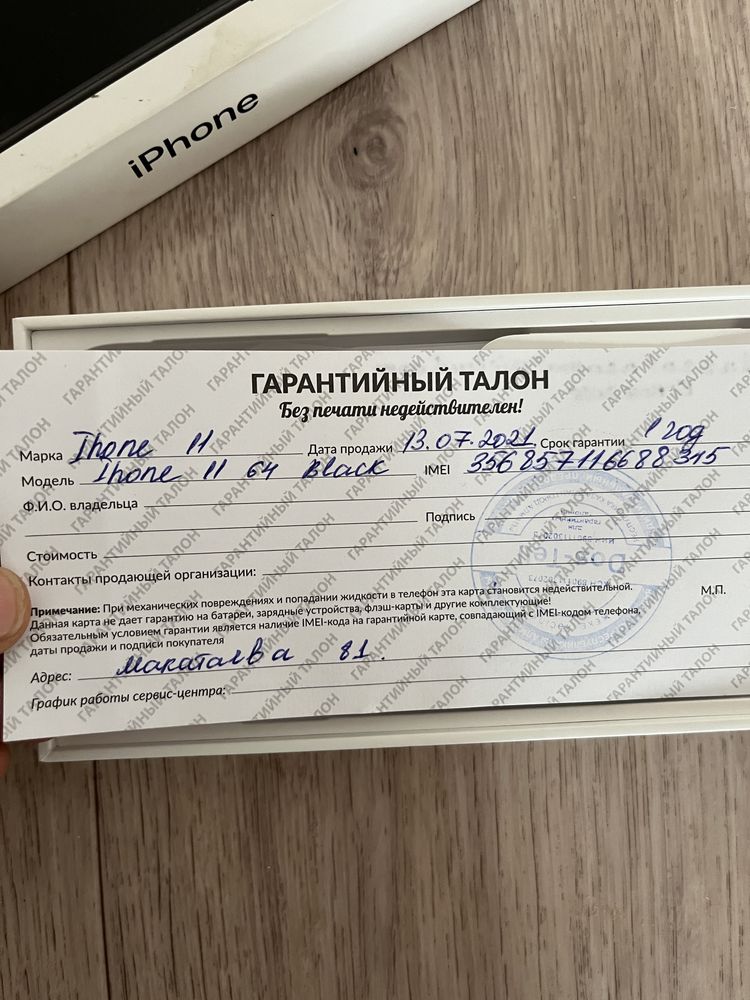 iPhone
ГАРАНТИЙНЫЙ ТАЛОН
Без печати недействителен!
Марка Ihone 11 Дата продажи 13.07.2021. Срок гарантии 1 год
Модель Ihone 11 64 Black IMEI 356857116688315
Ф.И.О. владельца
Подпись
Стоимость
Контакты продающей организации:
Примечание: При механических повреждениях и попадании жидкости в телефон эта карта становится недействительной.
М.П.
Данная карта не дает гарантию на батареи, зарядные устройства, флэш-карты и другие комплектующие!
Обязательным условием гарантии является наличие IMEI-кода на гарантийной карте, совпадающий с IMEI-кодом телефона,
даты продажи и подписи покупателя
Адрес: Макатаева 81.
График работы сервис-центра: